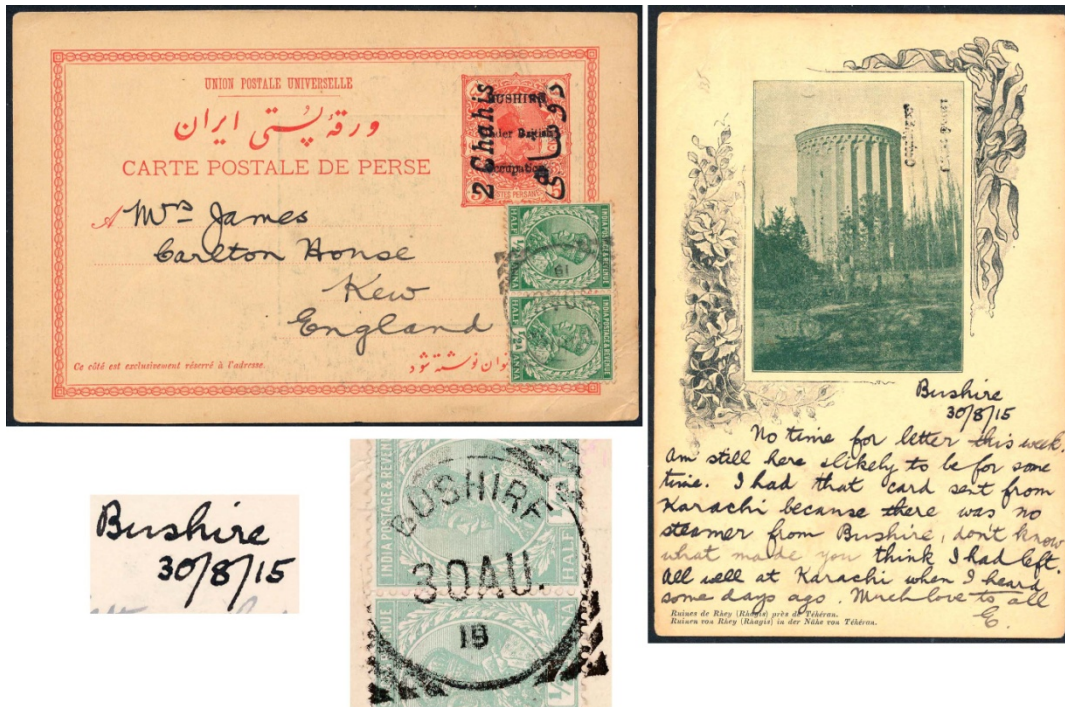 UNION POSTALE UNIVERSELLE
ورقهٔ پستی ایران
CARTE POSTALE DE PERSE
2 Chahis
BUSHIRE
Under British
Occupation
A Mrs James
Carlton House
Kew
England
Ce côté est exclusivement réservé à l'adresse.
نوشته شود
INDIA POSTAGE & REVENUE
HALF
ANNA
INDIA POSTAGE & REVENUE
HALF
ANNA
Bushire
30/8/15
No time for letter this week.
Am still here & likely to be for some
time. I had that card sent from
Karachi because there was no
steamer from Bushire, don't know
what made you think I had left.
All well at Karachi when I heard
some days ago. Much love to all
E.
Ruines de Rhey (Rhagis) près de Téhéran.
Ruinen von Rhey (Rhagis) in der Nähe von Téhéran.
Bushire
30/8/15
INDIA POSTAGE & REVENUE
HALF
BUSHIRE
30AU.